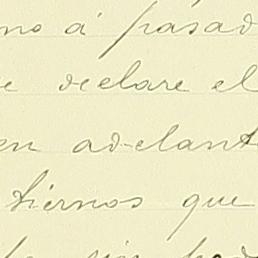 no á pasad
e declare el
en adelant
tiernos que